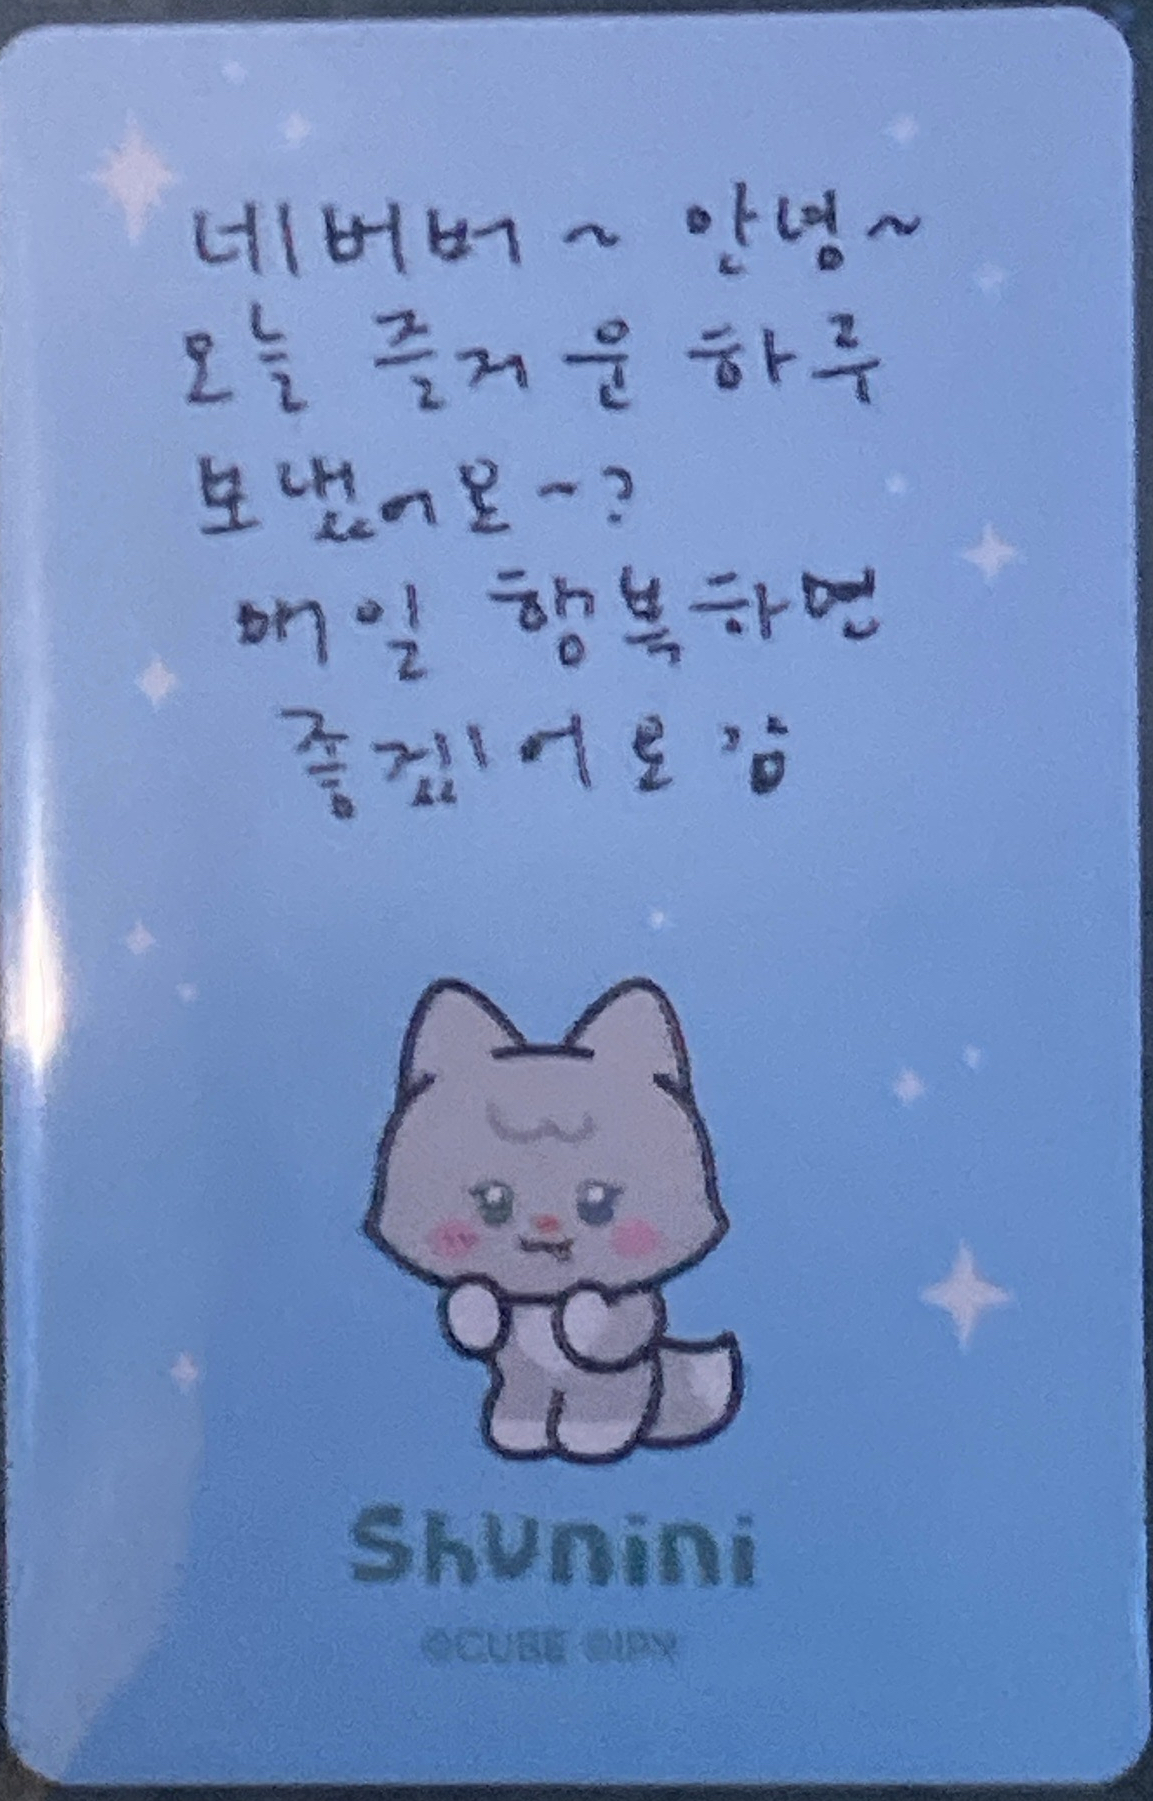 네버버~ 안녕~
오늘 즐거운 하루
보냈어요~?
매일 행복하면
좋겠어요
Shunini
©CUBE ©IPX